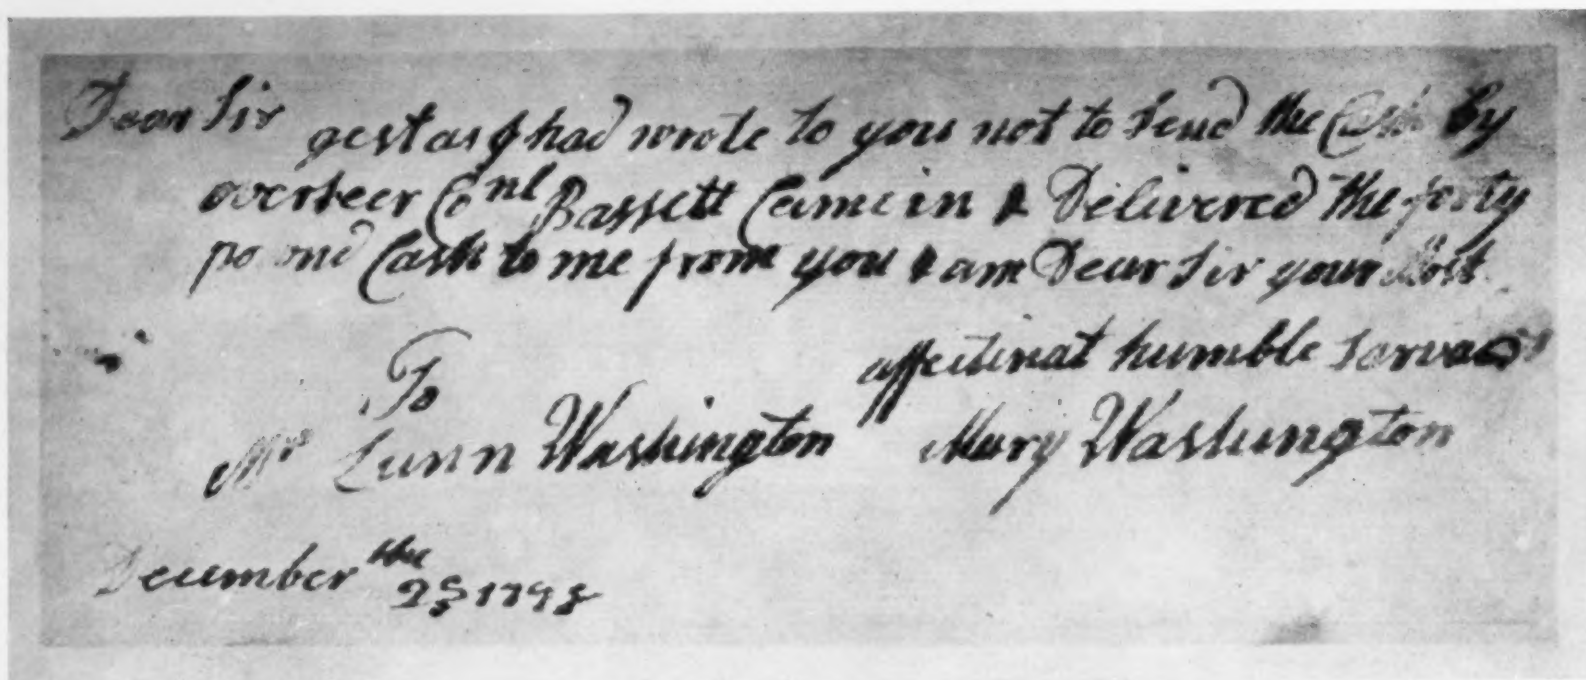 Dear Sir gest as I had wrote to you not to Send the Cash by
overseer Conl Bassett Came in & Delivered the forty
pound Cash to me from you & am Dear Sir your Most
affectinat humble Sarvant
To
Mr Lunn Washington Mary Washington
December the